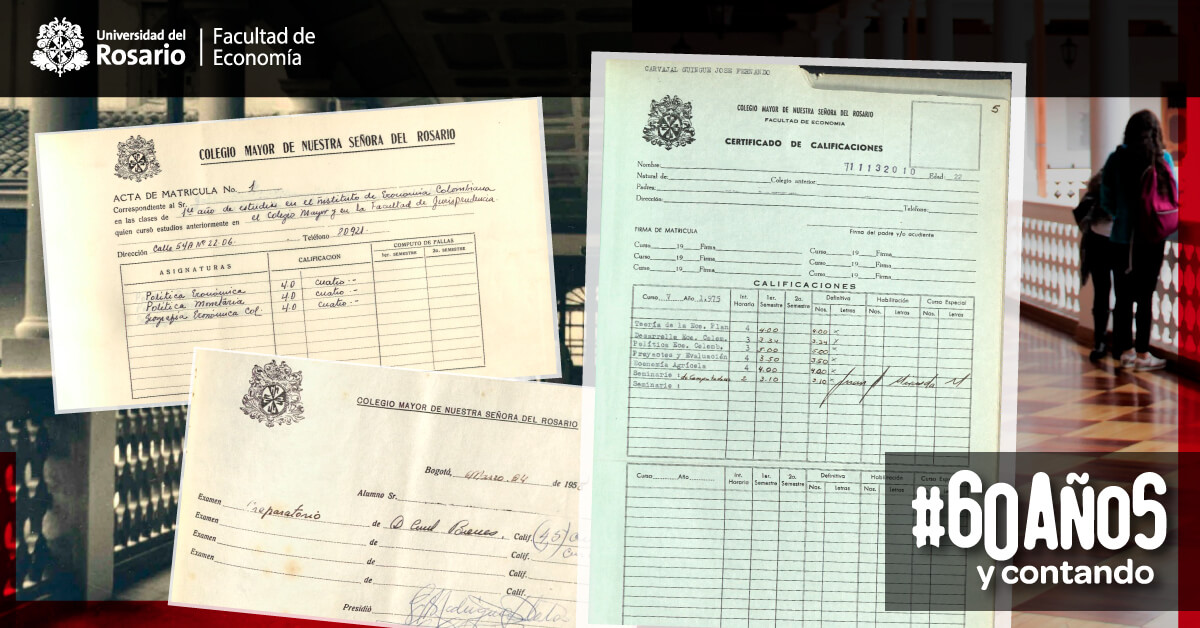 Universidad del
Rosario
Facultad de
Economía
COLEGIO MAYOR DE NUESTRA SEÑORA DEL ROSARIO
ACTA DE MATRICULA No. 1
Correspondiente al Sr.
en las clases de 1er año de estudios en el Instituto de Economía Colombiana
quien cursó estudios anteriormente en el Colegio Mayor y en la Facultad de Jurisprudencia
Dirección Calle 54A Nº 22-06. Teléfono 80921.
ASIGNATURAS CALIFICACION COMPUTO DE FALLAS
1er. SEMESTRE 2o. SEMESTRE
Política Económica 4.0 cuatro
Política Monetaria 4.0 cuatro
Geografía Económica Col. 4.0 cuatro
COLEGIO MAYOR DE NUESTRA SEÑORA DEL ROSARIO
Bogotá, Marzo 24 de 195
Alumno Sr.
Examen Preparatorio de D. Civil Bienes. Calif. (4,5)
Examen de Calif.
Examen de Calif.
Examen de Calif.
Presidió
CARVAJAL GUINGUE JOSE FERNANDO
5
COLEGIO MAYOR DE NUESTRA SEÑORA DEL ROSARIO
FACULTAD DE ECONOMIA
CERTIFICADO DE CALIFICACIONES
711132010
Nombre: Edad 22
Natural de Colegio anterior
Padres:
Dirección: Teléfono:
FIRMA DE MATRICULA Firma del padre y/o acudiente
Curso 19 Firma Curso 19 Firma
Curso 19 Firma Curso 19 Firma
Curso 19 Firma Curso 19 Firma
CALIFICACIONES
Curso Año 1.975 Int. Horario 1er. Semestre 2o. Semestre Definitiva Habilitación Curso Especial
Nos. Letras Nos. Letras Nos. Letras
Teoría de la Eco. Plan 4 4.00 4.00
Desarrollo Eco. Colom. 3 3.24 3.24
Política Eco. Colomb. 3 5.00 5.00
Proyectos y Evaluación 4 3.50 3.50
Economía Agrícola 4 4.00 4.00
Seminario : de Computadores 2 3.10 3.10
Seminario :
Curso Año Int. Horario 1er. Semestre 2o. Semestre Definitiva
Nos. Letras Nos. Letras
#60AÑOS
y contando